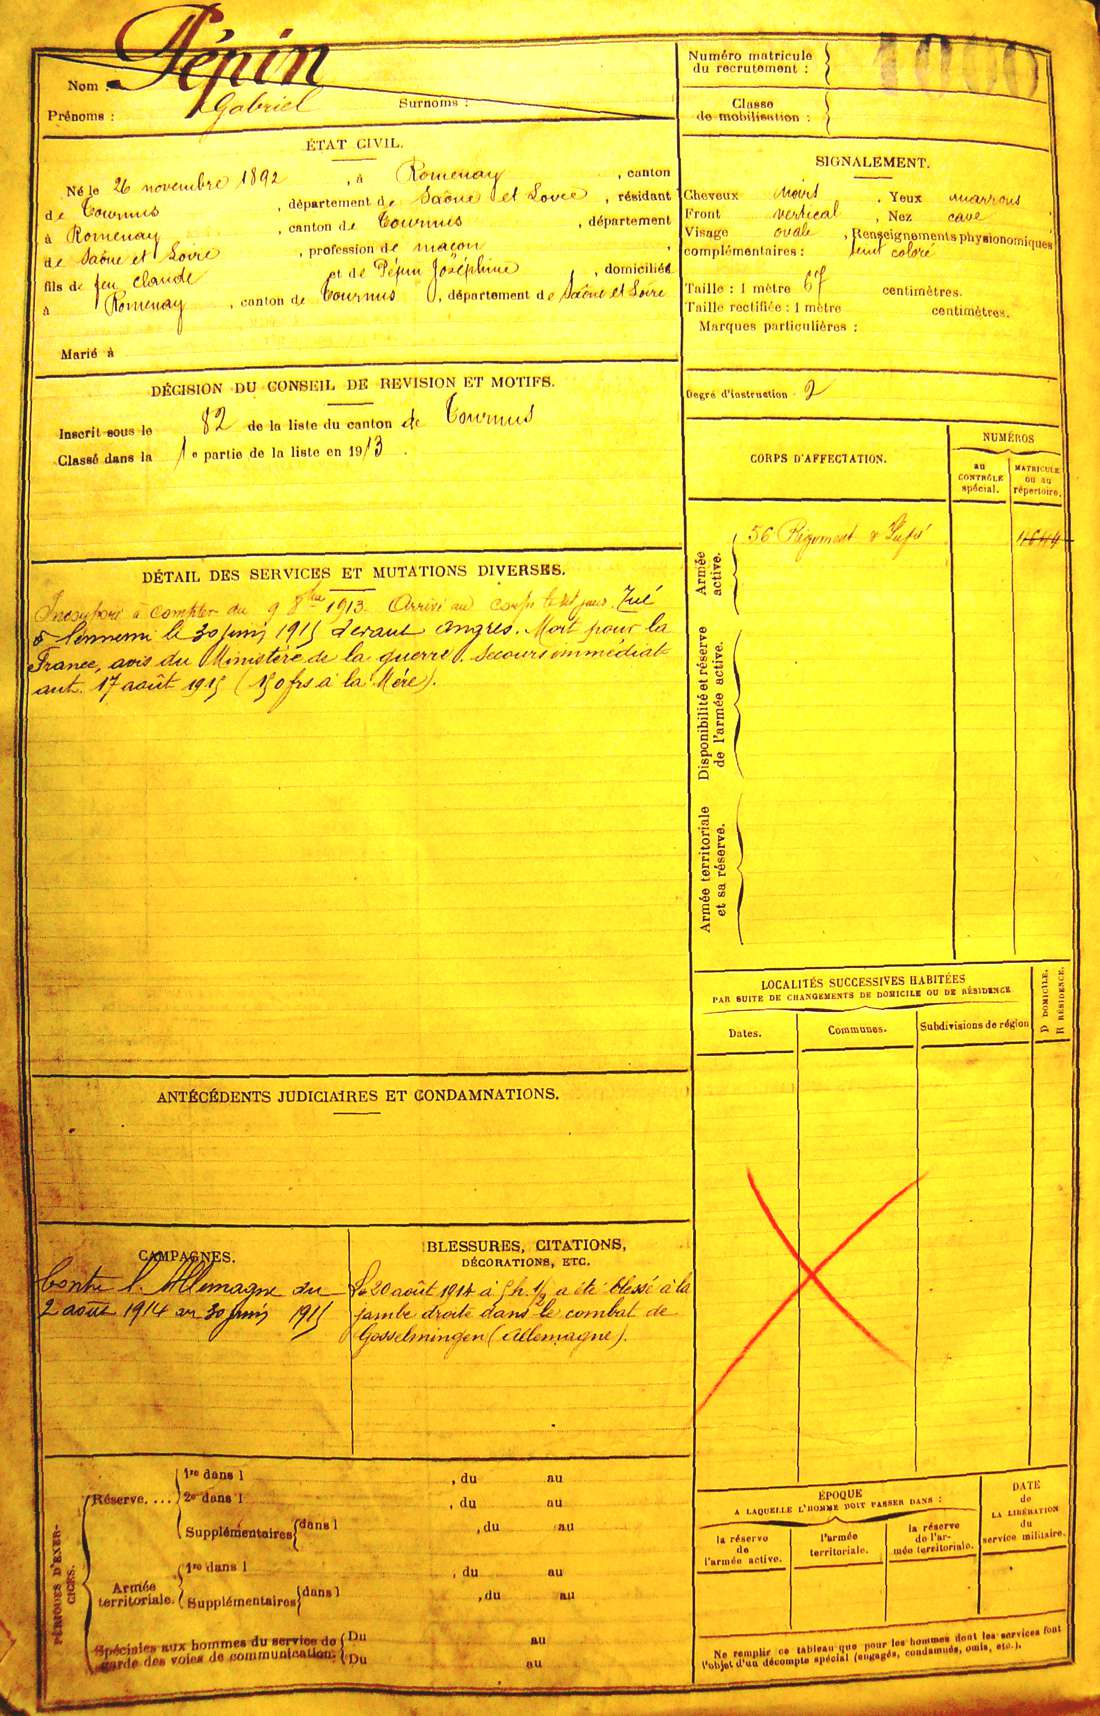 Nom : Pépin
Prénoms : Gabriel Surnoms :
ÉTAT CIVIL.
Né le 26 novembre 1892, à Romenay, canton
de Tournus, département de Saône et Loire, résidant
à Romenay, canton de Tournus, département
de Saône et Loire, profession de maçon,
fils de feu Claude et de Pépin Joséphine, domiciliés
à Romenay, canton de Tournus, département de Saône et Loire
Marié à
DÉCISION DU CONSEIL DE REVISION ET MOTIFS.
Inscrit sous le 82 de la liste du canton de Tournus
Classé dans la 1e partie de la liste en 1913.
DÉTAIL DES SERVICES ET MUTATIONS DIVERSES.
Incorporé à compter du 9 8bre 1913. Arrivé au corps le dit jour. Tué
à l'ennemi le 30 juin 1915 devant Angres. Mort pour la
France, avis du Ministère de la guerre. Secours immédiat
aut. 17 août 1915 (150 frs à la Mère).
ANTÉCÉDENTS JUDICIAIRES ET CONDAMNATIONS.
CAMPAGNES.
Contre l'Allemagne du
2 août 1914 au 30 juin 1915
BLESSURES, CITATIONS,
DÉCORATIONS, ETC.
Le 20 août 1914 à 5 h. 1/2 a été blessé à la
jambe droite dans le combat de
Gosselmingen (Allemagne).
PÉRIODES D'EXERCICES.
Réserve.... 1re dans l , du au
2e dans l , du au
Supplémentaires dans l , du au
Armée territoriale. 1re dans l , du au
Supplémentaires dans l , du au
Spéciales aux hommes du service de Du au
garde des voies de communication: Du au
Numéro matricule
du recrutement : 1000
Classe
de mobilisation :
SIGNALEMENT.
Cheveux noirs. Yeux marrons
Front vertical, Nez cave
Visage ovale, Renseignements physionomiques
complémentaires : teint coloré
Taille : 1 mètre 67 centimètres.
Taille rectifiée : 1 mètre centimètres.
Marques particulières :
Degré d'instruction 2
CORPS D'AFFECTATION.
NUMÉROS
au
CONTRÔLE
spécial.
MATRICULE
ou au
répertoire.
Armée
active.
56 Régiment d'Infie
Disponibilité et réserve
de l'armée active.
Armée territoriale
et sa réserve.
LOCALITÉS SUCCESSIVES HABITÉES
PAR SUITE DE CHANGEMENTS DE DOMICILE OU DE RÉSIDENCE
Dates. Communes. Subdivisions de région
D DOMICILE.
R RÉSIDENCE.
ÉPOQUE
A LAQUELLE L'HOMME DOIT PASSER DANS :
la réserve
de
l'armée active.
l'armée
territoriale.
la réserve
de l'ar-
mée territoriale.
DATE
de
LA LIBÉRATION
du
service militaire.
Ne remplir ce tableau que pour les hommes dont les services font
l'objet d'un décompte spécial (engagés, condamnés, omis, etc.).